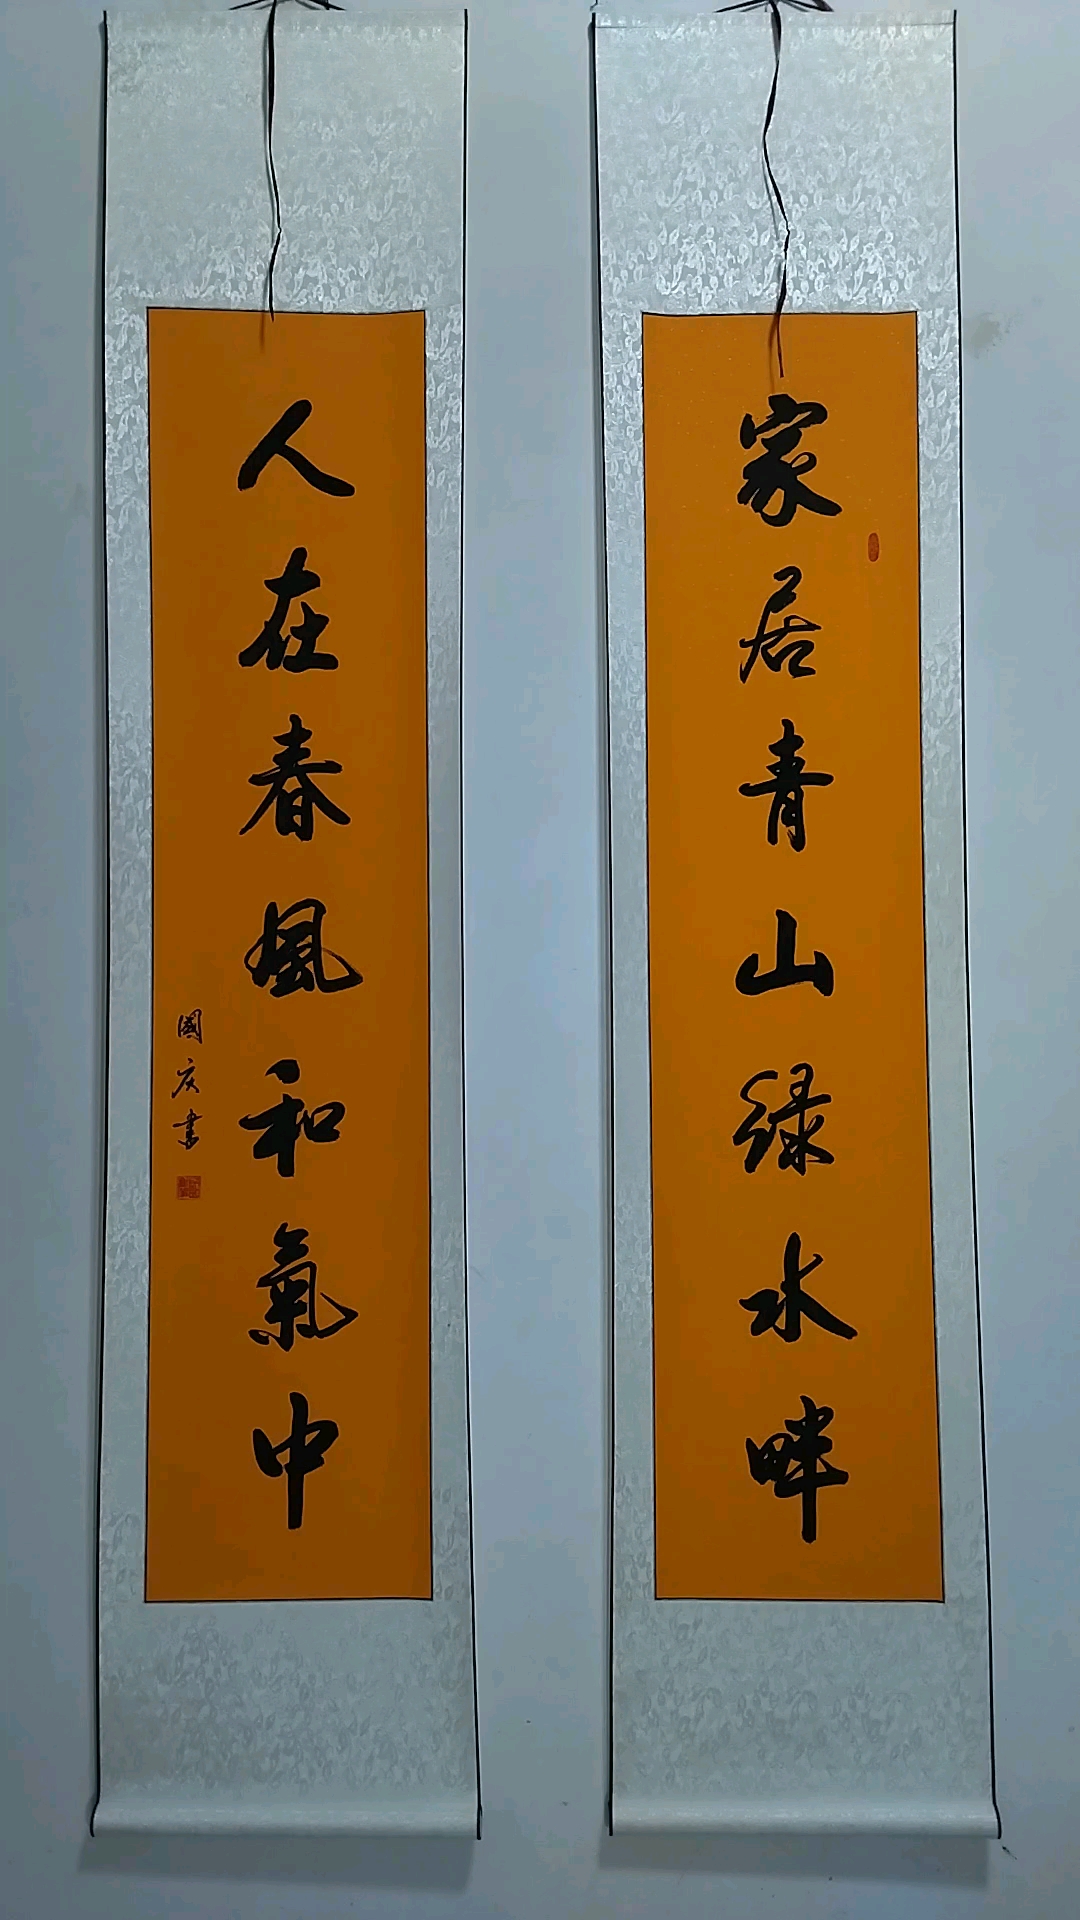 家居青山绿水畔
人在春風和氣中
國庆书